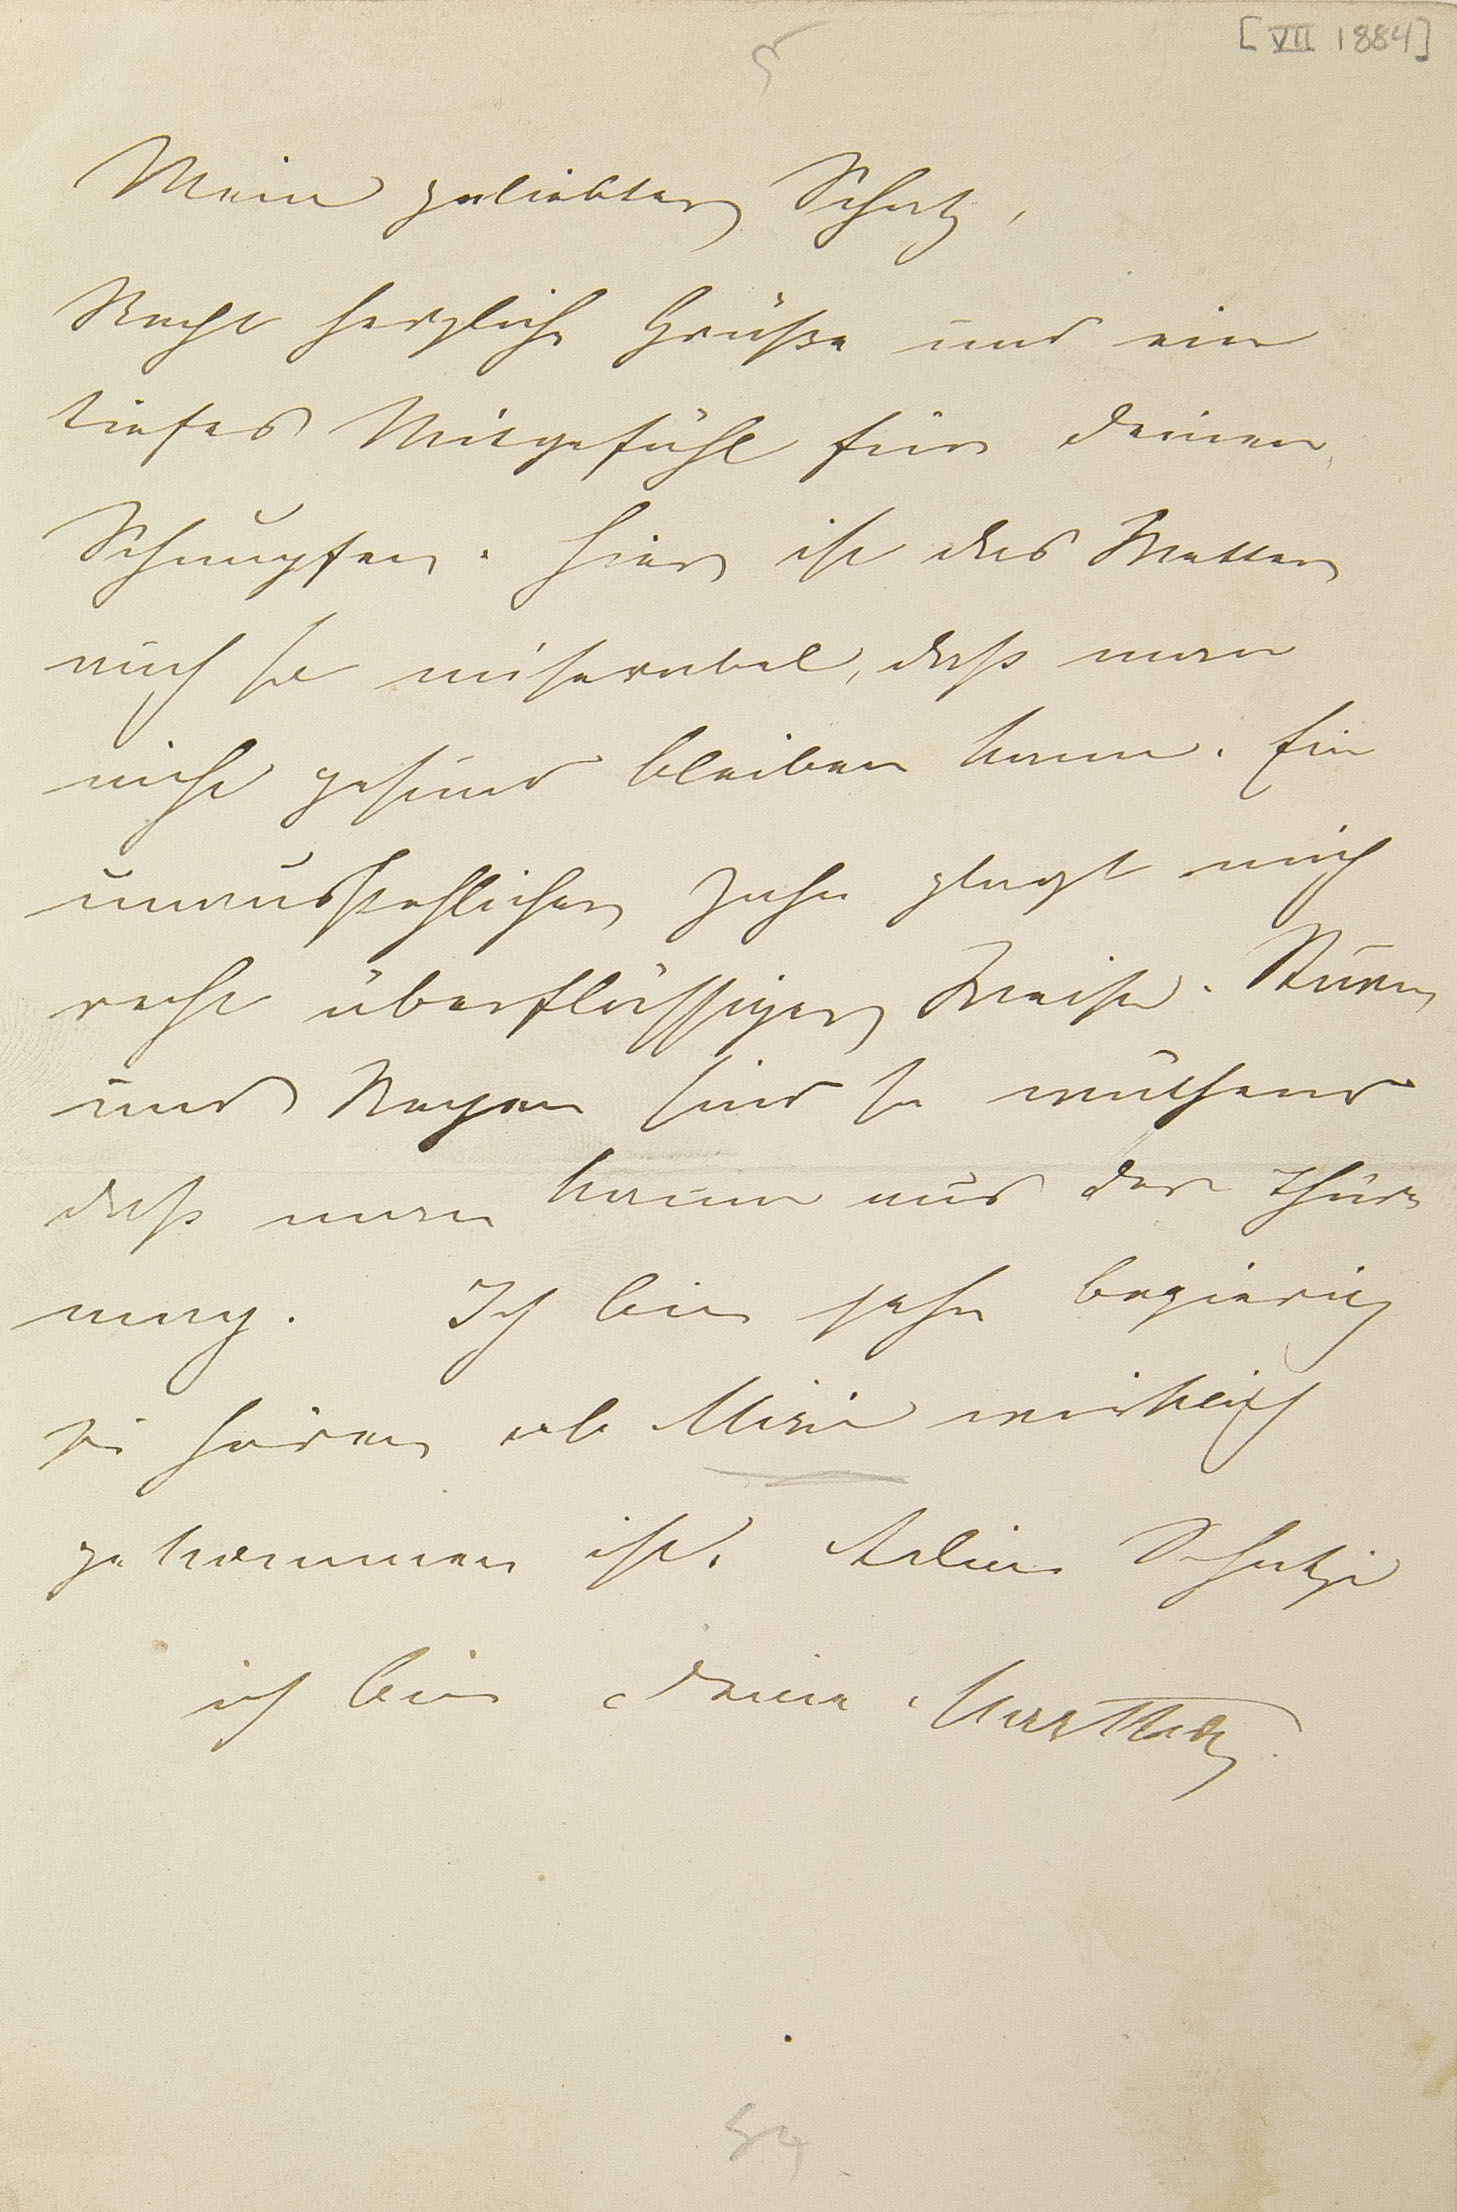 [VII 1884]
Mein geliebter Schatz,
Recht herzliche Grüße und ein
tiefes Mitgefühl für Deinen
Schnupfen. Hier ist das Wetter
auch so miserabel, daß man
nicht gesund bleiben kann. Ein
unausstehlicher Zahn plagt mich
recht überflüssiger Weise. Sturm
und Regen sind so wüthend
daß man kaum aus der Thüre
mag. Ich bin sehr begierig
zu hören ob Mini wirklich
gekommen ist. Adieu Schatzi
ich bin Deine
54